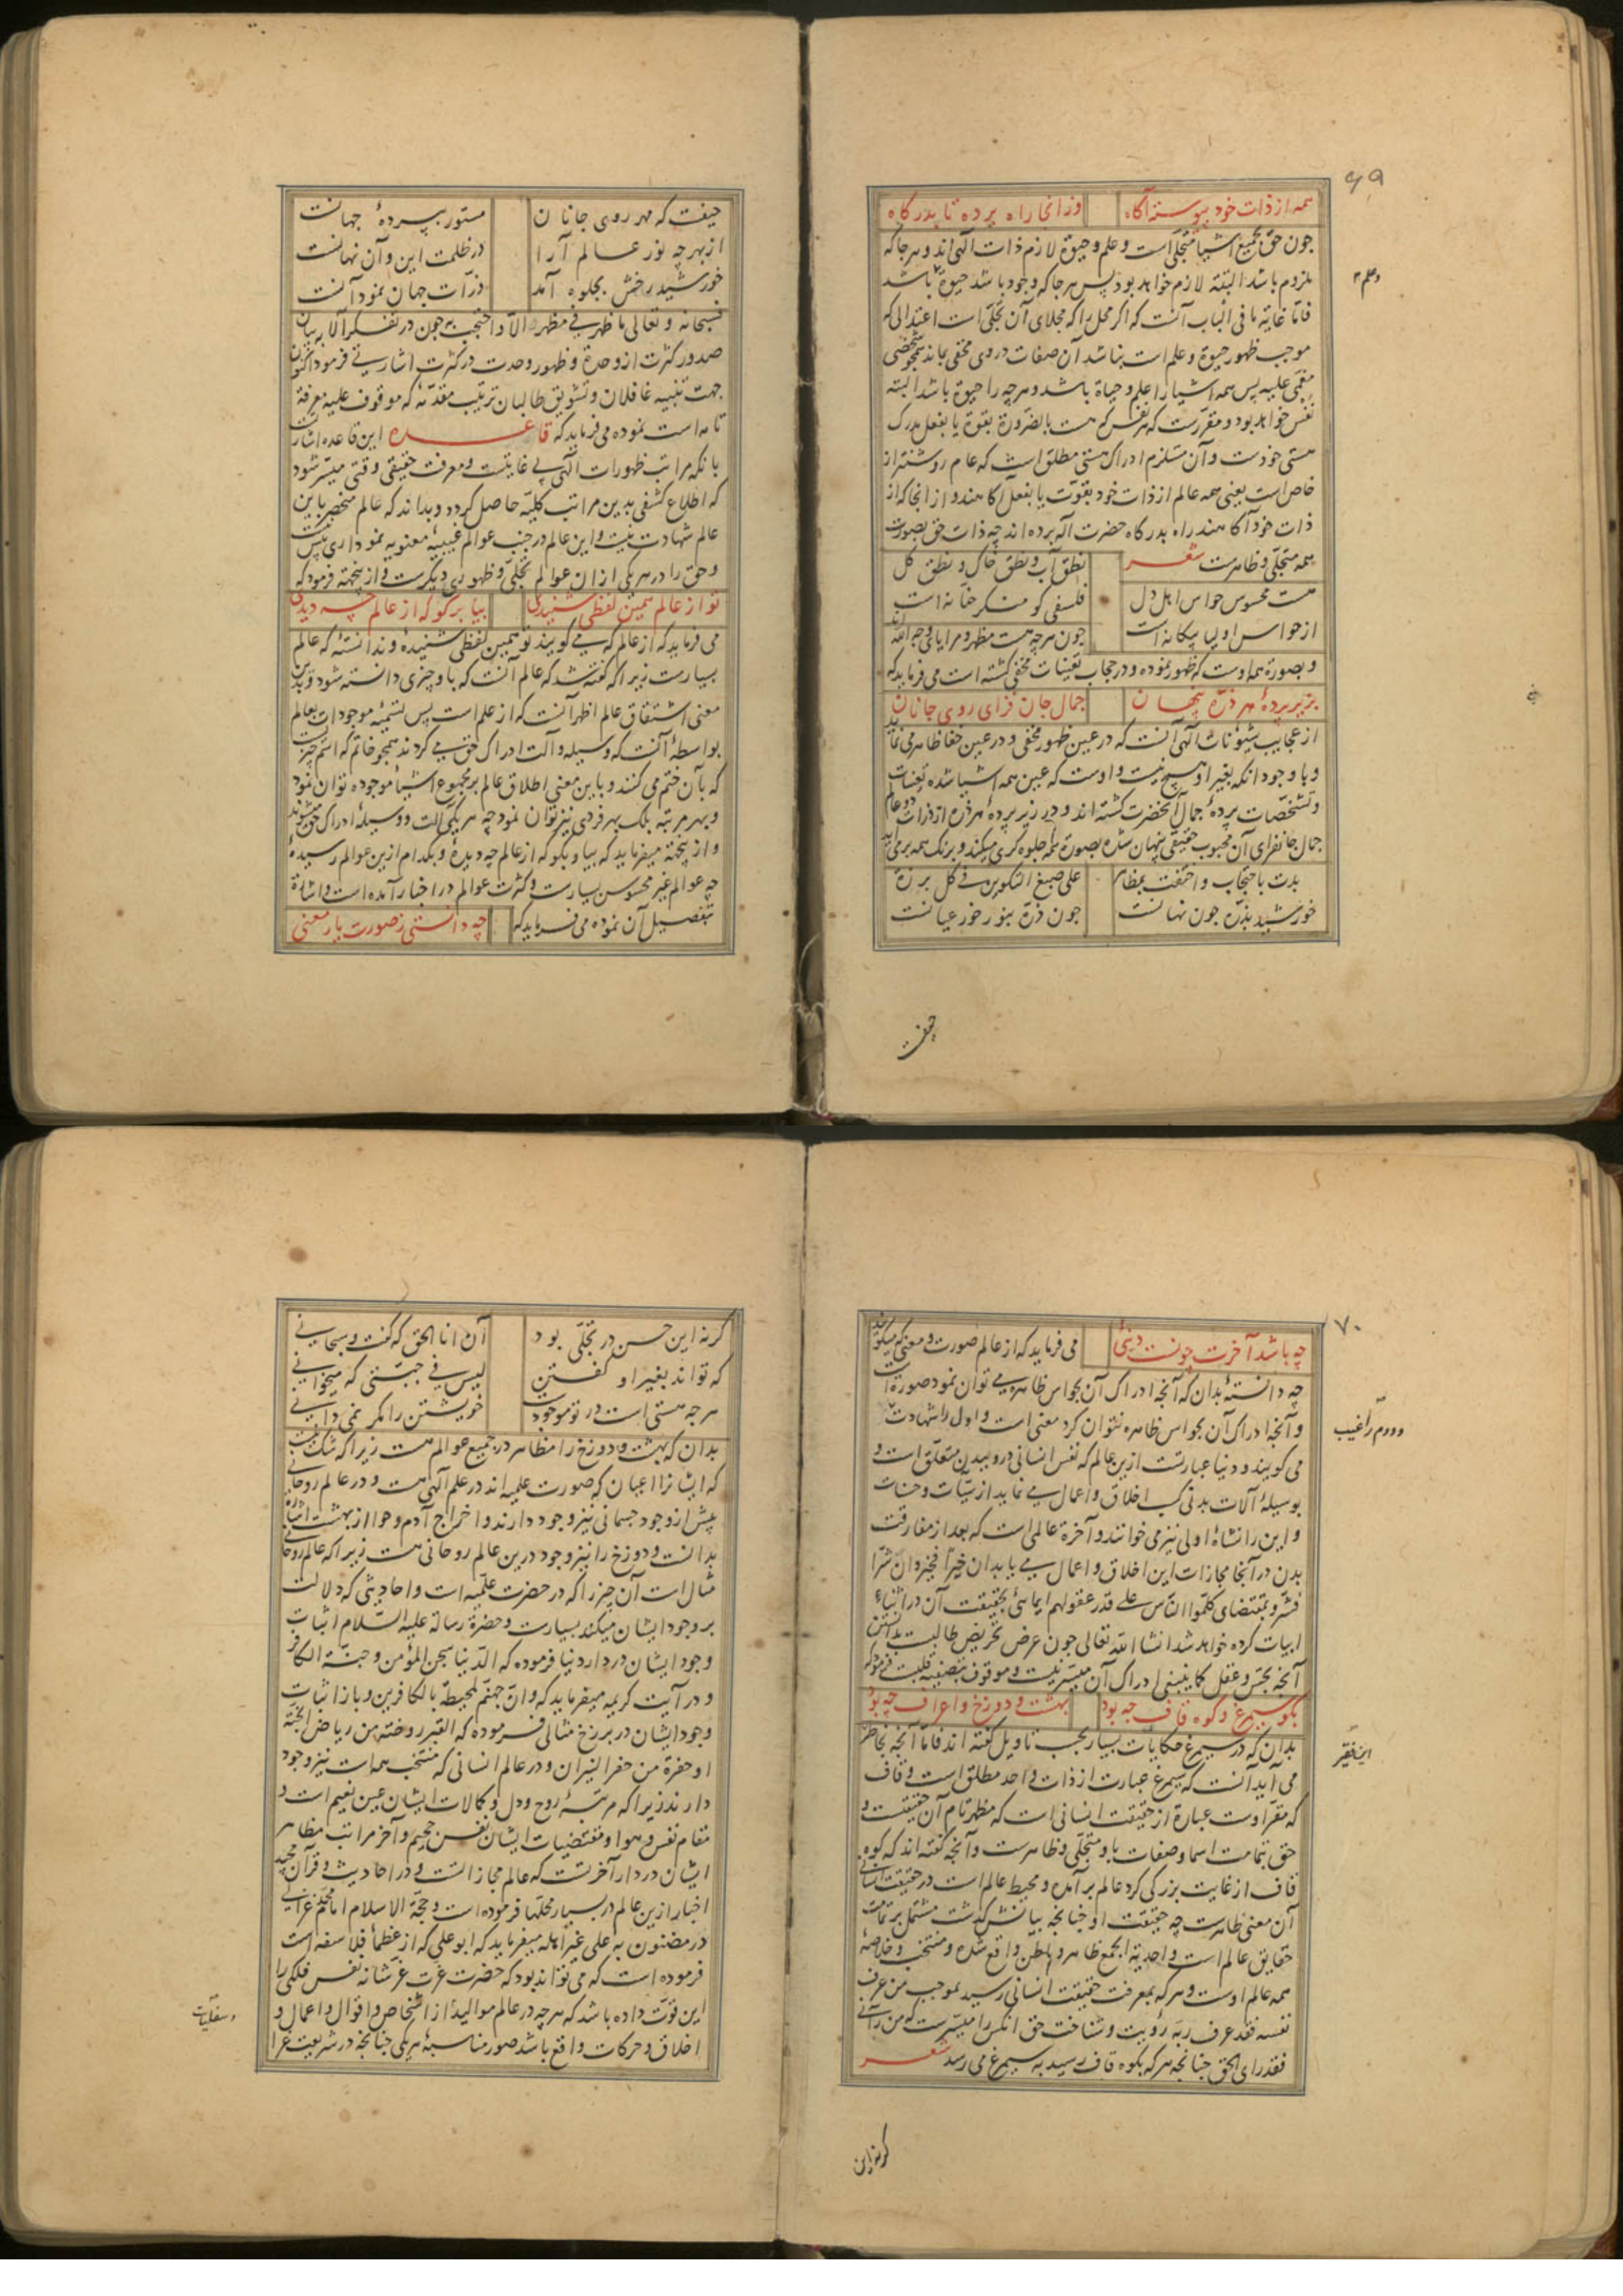 ۶۹
همه از ذات خود پیوسته آگاه وز آنجا راه برده تا بدرگاه
چون حق بجمیع اشیا متجلی است و علم و حیوة لازم ذات الهی اند و هر جا که
ملزوم باشد البته لازم خواهد بود پس هر جا که وجود باشد حیوة باشد
و علم
فاما غایة ما فی الباب آنست که اگر محل را که مجلای آن تجلی است اعتدالی که
موجب ظهور حیوة و علم است نباشد آن صفات در وی مختفی بماند همچو شخصی
مغمی علیه پس همه اشیا را علم و حیاة باشد و هر چه را حیوة باشد البته
نفس خواهد بود و مقررست که هر نفس که هست بالضرورة بقوة یا بفعل مدرک
هستی خودست و آن مستلزم ادراک هستی مطلق است که عام روشنتر از
خاص است یعنی همه عالم از ذات خود بقوت یا بفعل آگاهند و از انجا که از
ذات خود آگاهند راه بدرگاه حضرت آله برده اند چه ذات حق بصورت
همه متجلی و ظاهرست شعر نطق آب و نطق خاک و نطق گل
هست محسوس حواس اهل دل فلسفی کو منکر حنانه است
از حواس اولیا بیگانه است چون هر چه هست مظهر و مرایای وجه الله اند
و بصورة همه اوست که ظهور نموده و در حجاب تعینات مخفی گشته است می فرماید که
بزیر پردهٔ هر ذره پنهان جمال جان فزای روی جانان
از عجایب شئونات الهی آنست که در عین ظهور مخفی و در عین خفا ظاهر می نماید
و با وجود انکه بغیر او هیچ نیست و اوست که عین همه اشیا شده تعینات
و تشخصات پردهٔ جمال آنحضرت گشته اند و در زیر پردهٔ هر ذره از ذرات دو عالم
جمال جانفزای آن محبوب حقیقی پنهان شده بصورة همه جلوه گری میکند و برنگ همه برمی آید
بدت باحتجاب و اختفت بمظاهر علی صبغ التکوین فی کل برزة
خورشید بذره چون نهانست چون ذره بنور خور عیانست
حیفست
حیفست که مهر روی جانان مستور بپردهٔ جهانست
از بهر چه نور عالم آرا در ظلمت این و آن نهانست
خورشید رخش بجلوه آمد ذرات جهان نمود آنست
فسبحانه و تعالی ما ظهر فی مظهر الا و احتجب به چون در تفکر آلا بیان
صدور کثرت از وحدة و ظهور وحدت در کثرت اشارتی فرمود اکنون
جهت تنبیه غافلان و تشویق طالبان ترتیب مقدمه که موقوف علیه معرفة
تامه است نموده می فرماید که قاعده این قاعده اشارت
بانکه مراتب ظهورات الهی بی غایتست و معرفت حقیقی وقتی میسر شود
که اطلاع کشفی بدین مراتب کلیه حاصل گردد و بداند که عالم منحصر باین
عالم شهادت نیست و این عالم در جنب عوالم غیبیهٔ معنویه نموداری بیش نیست
و حق را در هر یکی ازان عوالم تجلی و ظهوری دیگرست و از ینجهة فرمود که
تو از عالم همین لفظی شنیدی بیا برگو که از عالم چه دیدی
می فرماید که از عالم که می گویند تو همین لفظی شنیدهٔ و ندانستهٔ که عالم
بسیارست زیرا که گفته شد که عالم آنست که باو چیزی دانسته شود و بدین
معنی اشتقاق عالم اظهر آنست که از علم است پس تسمیهٔ موجودات بعالم
بواسطهٔ آنست که وسیله و آلت ادراک حق می گردند همچو خاتم که اسم چیزیست
که بآن ختم می کنند و باین معنی اطلاق عالم بر مجموع اشیاء موجوده توان نمود
و بهر مرتبه بلک بهر فردی نیز توان نمود چه هر یکی آلت و وسیلهٔ ادراک حق میشوند
و از ینجهة میفرماید که بیا و بگو که از عالم چه دیدهٔ و بکدام ازین عوالم رسیدهٔ
چه عوالم غیر محسوس بسیارست و کثرت عوالم در اخبار آمده است و اشارة
بتفصیل آن نموده می فرماید که چه دانستی ز صورت یا ز معنی
۷۰
چه باشد آخرت چونست دنیی می فرماید که از عالم صورت و معنی که میگویند
چه دانستهٔ بدان که آنچه ادراک آن بحواس ظاهره می توان نمود صورة است
و آنچه ادراک آن بحواس ظاهره نتوان کرد معنی است و اول را شهادت
و دوم را غیب
می گویند و دنیا عبارتست ازین عالم که نفس انسانی درو ببدن متعلق است و
بوسیلهٔ آلات بدنی کسب اخلاق و اعمال می نماید از سیئات و حسنات
و این را نشاهٔ اولی نیز می خوانند و آخرة عالمی است که بعد از مفارقت
بدن در آنجا مجازات این اخلاق و اعمال می یابد ان خیرا فخیر و ان شرا
فشر و بمقتضای کلموا الناس علی قدر عقولهم ایمائی بحقیقت آن در اثناء
ابیات کرده خواهد شد انشا الله تعالی چون غرض تحریض طالبست بدانستن
آنچه بحس و عقل کما ینبغی ادراک آن میسر نیست و موقوف بتصفیه قلبست فرمود که
بگو سیمرغ و کوه قاف چه بود بهشت و دوزخ و اعراف چه بود
بدان که در سیمرغ حکایات بسیار بحسب تاویل گفته اند فاما آنچه بخاطر
این فقیر
می آید آنست که سیمرغ عبارت از ذات واحد مطلق است و قاف
که مقر اوست عبارة از حقیقت انسانی است که مظهر تام آن حقیقتست و
حق بتمامت اسما و صفات باو متجلی و ظاهرست و آنچه گفته اند که کوه
قاف از غایت بزرگی گرد عالم برآمده و محیط عالم است در حقیقت انسانی
آن معنی ظاهرست چه حقیقت او چنانچه بیانش گذشت مشتمل بر تمامت
حقایق عالم است و احدیة الجمع ظاهر و باطن واقع شده و منتخب و خلاصهٔ
همه عالم اوست و هر که بمعرفت حقیقت انسانی رسید بموجب من عرف
نفسه فقد عرف ربه رؤیت و شناخت حق انکس را میسرست که من رآنی
فقد رای الحق چنانچه هر که بکوه قاف رسید به سیمرغ می رسد شعر
گر نه این
گر نه این حسن در تجلی بود آن انا الحق که گفت و سبحانی
که تواند بغیر او گفتن لیس فی جبتی که میخوانی
هر چه هستی است در تو موجود خویشتن را مگر نمی دانی
بدان که بهشت و دوزخ را مظاهر در جمیع عوالم هست زیرا که شک نیست
که ایشانرا اعیان که صورت علمیه اند در علم الهی هست و در عالم روحانی
پیش از وجود جسمانی نیز وجود دارند و اخراج آدم و حوا از بهشت اشارة
بدانست و دوزخ را نیز وجود درین عالم روحانی هست زیرا که عالم روحانی
مثال است آن چیز را که در حضرت علمیه است و احادیثی که دلالت
بر وجود ایشان میکند بسیارست و حضرة رسالة علیه السلام اثبات
وجود ایشان در دار دنیا فرموده که الدنیا سجن المؤمن و جنة الکافر
و در آیت کریمه میفرماید که و ان جهنم لمحیطة بالکافرین و باز اثبات
وجود ایشان در برزخ مثالی فرموده که القبر روضة من ریاض الجنة
او حفرة من حفر النیران و در عالم انسانی که منتخب همه است نیز وجود
دارند زیرا که مرتبهٔ روح و دل و کمالات ایشان عین نعیم است و
مقام نفس و هوا و مقتضیات ایشان نفس جحیم و آخر مراتب مظاهر
ایشان در دار آخرتست که عالم مجازاتست و در احادیث و قرآن مجید
اخبار ازین عالم در بسیار محلها فرموده است و حجة الاسلام امام محمد غزالی
در مضنون به علی غیر اهله میفرماید که ابو علی که از عظماء فلاسفه است
فرموده است که می تواند بود که حضرت عزت عز شانه نفس فلکی را
این قوت داده باشد که هر چه در عالم موالید از اشخاص و اقوال و اعمال و
و سفلیات
اخلاق و حرکات واقع باشد صور مناسبهٔ هر یکی چنانچه در شریعت غرا